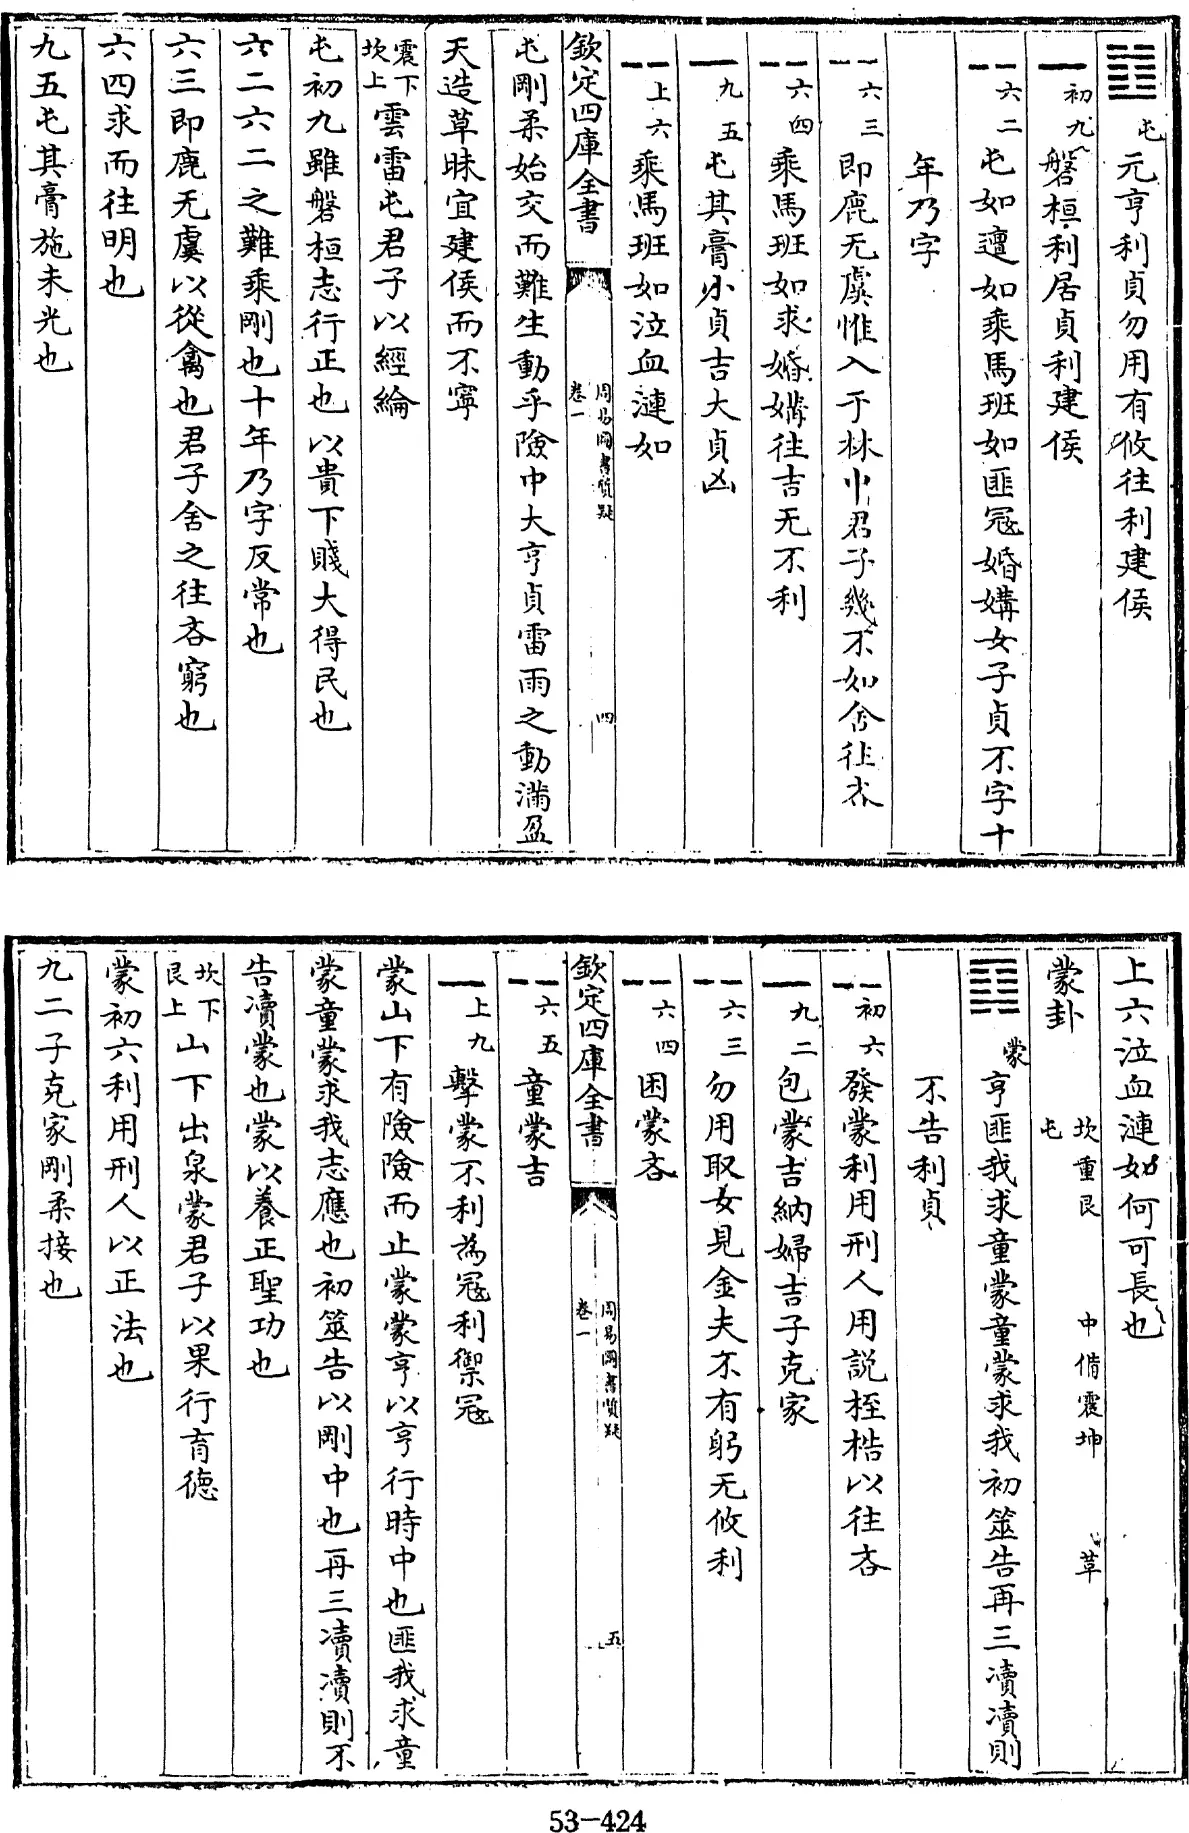 屯元亨利貞勿用有攸往利建侯
初九磐桓利居貞利建侯
六二屯如邅如乘馬班如匪冦婚媾女子貞不字十
年乃字
六三即鹿无虞惟入于林中君子幾不如舍往吝
六四乘馬班如求婚媾往吉无不利
九五屯其膏小貞吉大貞凶
上六乘馬班如泣血漣如
欽定四庫全書
周易圖書質疑
卷一
四
屯剛柔始交而難生動乎險中大亨貞雷雨之動滿盈
天造草昧宜建侯而不寧
震下
坎上雲雷屯君子以經綸
屯初九雖磐桓志行正也以貴下賤大得民也
六二六二之難乘剛也十年乃字反常也
六三即鹿无虞以從禽也君子舍之往吝窮也
六四求而往明也
九五屯其膏施未光也
上六泣血漣如何可長也
蒙卦
坎重艮 中備震坤 革
屯
蒙亨匪我求童蒙童蒙求我初筮告再三瀆瀆則
不告利貞
初六發蒙利用刑人用說桎梏以往吝
九二包蒙吉納婦吉子克家
六三勿用取女見金夫不有躬无攸利
六四困蒙吝
欽定四庫全書
周易圖書質疑
卷一
五
六五童蒙吉
上九擊蒙不利為冦利禦冦
蒙山下有險險而止蒙蒙亨以亨行時中也匪我求童
蒙童蒙求我志應也初筮告以剛中也再三瀆瀆則不
告瀆蒙也蒙以養正聖功也
坎下
艮上山下出泉蒙君子以果行育德
蒙初六利用刑人以正法也
九二子克家剛柔接也
53-424